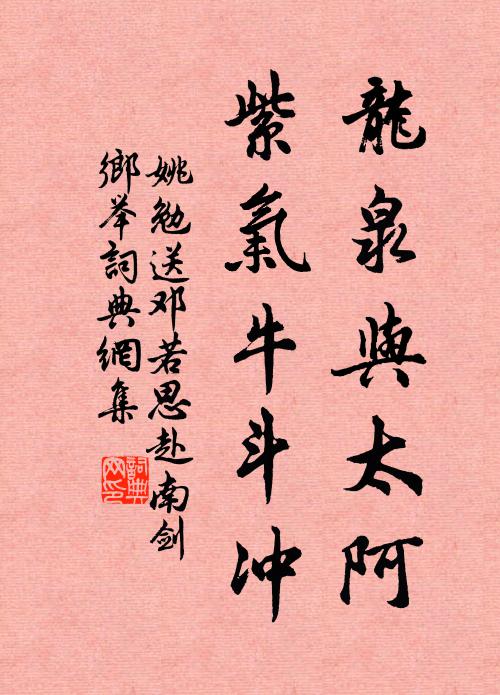 龍泉與太阿
紫氣牛斗冲
姚勉送邓若思赴南劍
鄉举詞典網集
詞典網印